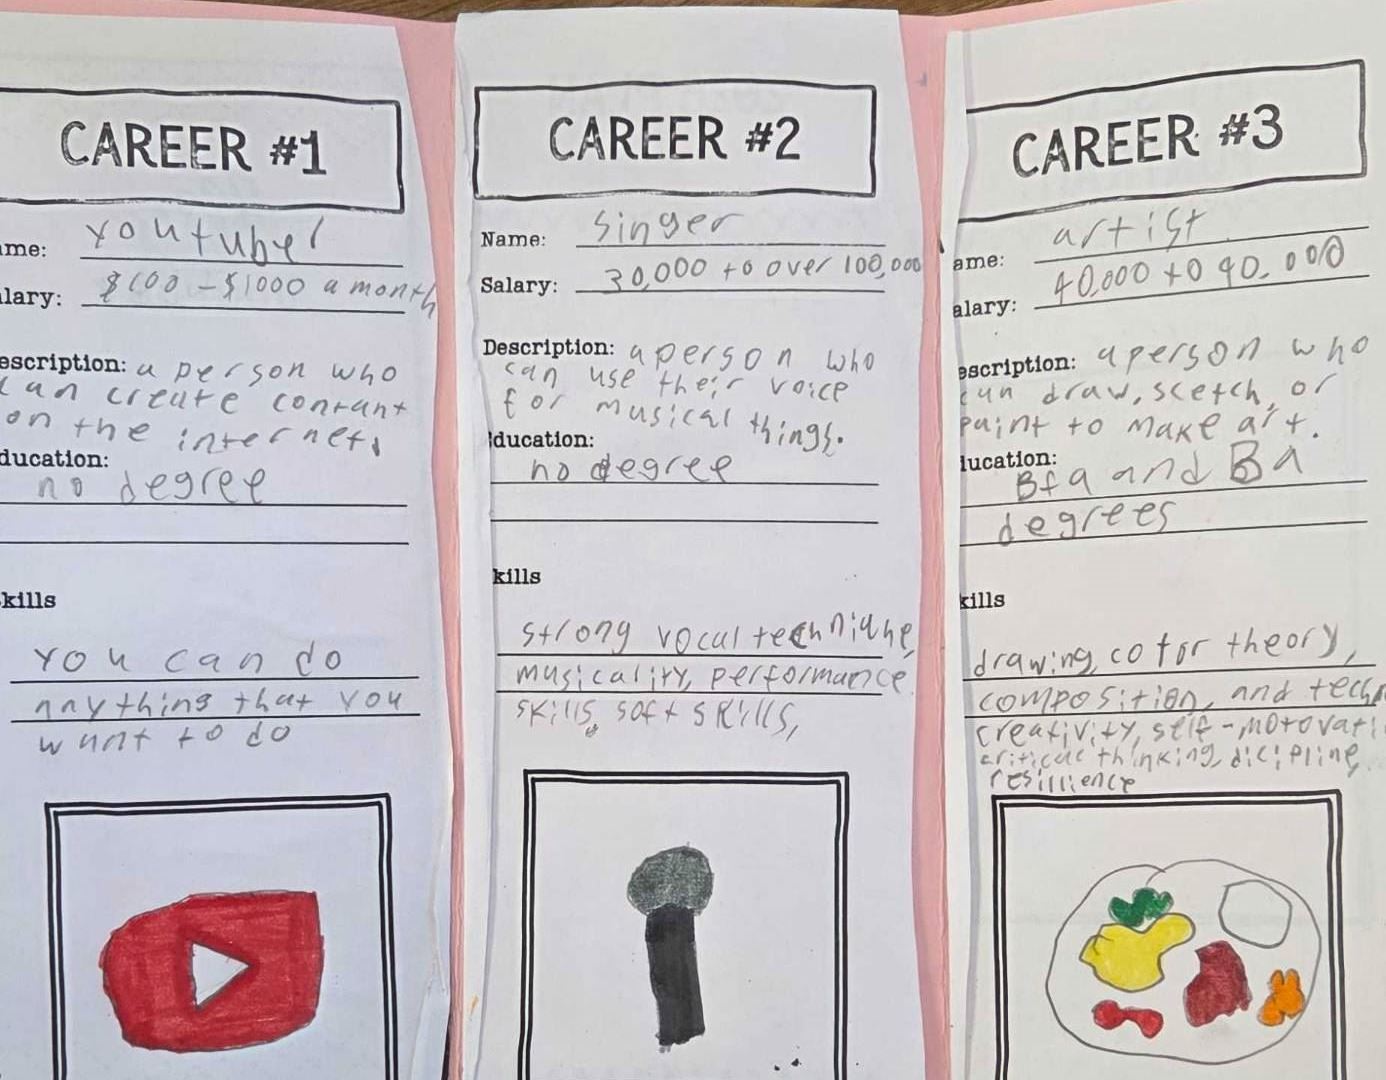 CAREER #1
ame: youtuber
alary: $100 - $1000 a month
escription: a person who
can create contant
on the internet.
ducation:
no degree
kills
you can do
anything that you
want to do
CAREER #2
Name: singer
Salary: 30,000 to over 100,000
Description: a person who
can use their voice
for musical things.
ducation:
no degree
kills
strong vocal technique,
musicality, performance
skills, soft skills,
CAREER #3
ame: artist
alary: 40,000 to 90,000
escription: a person who
can draw, scetch, or
paint to make art.
ducation:
Bfa and Ba
degrees
kills
drawing, color theory,
composition, and tech
creativity, self-motovati
critical thinking, dicipline,
resillience